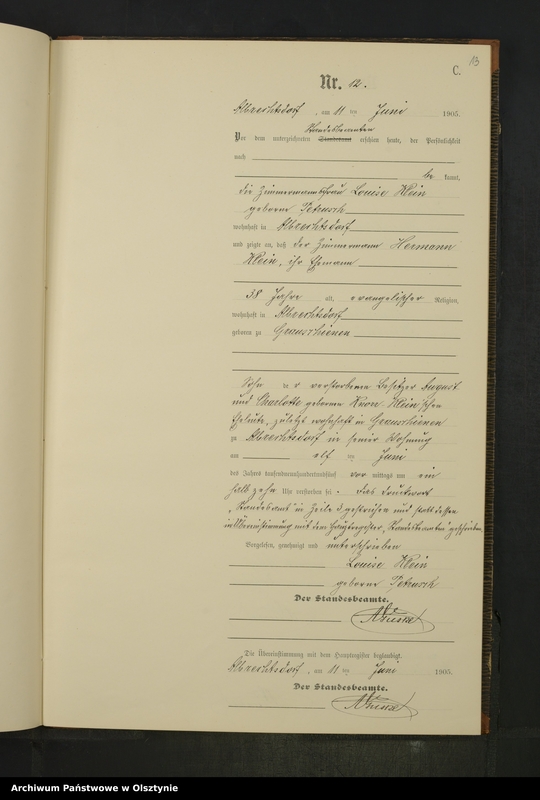 13
C.
Nr. 12.
Albrechtsdorf, am 11 ten Juni 1905.
Standesbeamten
Vor dem unterzeichneten Standesamt erschien heute, der Persönlichkeit
nach
be kannt,
die Zimmermannsfrau Louise Klein
geborene Petrusch
wohnhaft in Albrechtsdorf
und zeigte an, daß der Zimmermann Hermann
Klein, ihr Ehemann
38 Jahre alt, evangelischer Religion,
wohnhaft in Albrechtsdorf
geboren zu Grauschienen
Sohn der verstorbenen Besitzer August
und Charlotte geborenen Knorr Klein'schen
Eheleute, zuletzt wohnhaft in Grauschienen
zu Albrechtsdorf in seiner Wohnung
am elf ten Juni
des Jahres tausendneunhundertundfünf vor mittags um ein
halb zehn Uhr verstorben sei. Das Druckwort
Standesamt in Zeile 2 gestrichen und statt dessen
in Übereinstimmung mit dem Hauptregister „Standesbeamten" geschrieben
Vorgelesen, genehmigt und unterschrieben
Louise Klein
geborene Petrusch
Der Standesbeamte.
Die Übereinstimmung mit dem Hauptregister beglaubigt.
Albrechtsdorf, am 11 ten Juni 1905.
Der Standesbeamte.
Archiwum Państwowe w Olsztynie